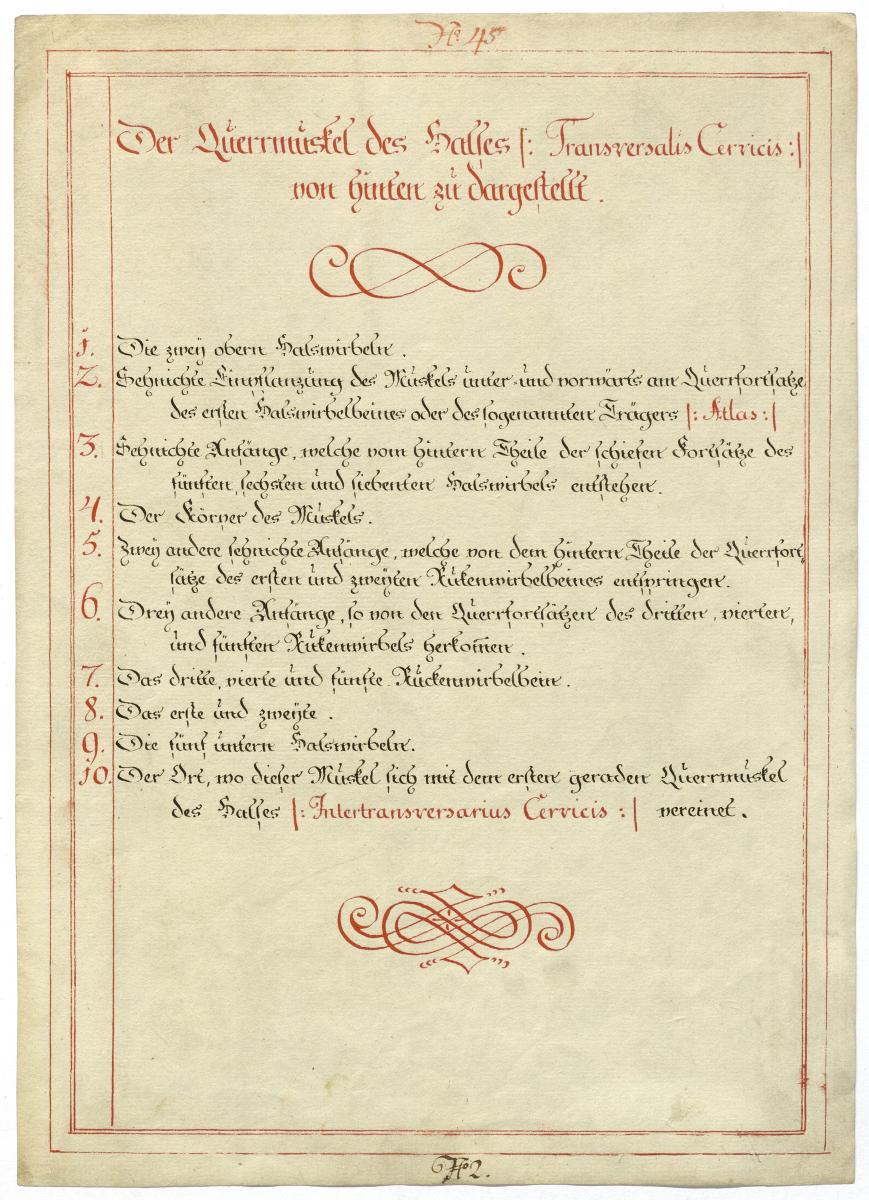 No. 45
Der Querrmuskel des Halses |: Transversalis Cervicis :|
von hinten zu dargestellt.
1. Die zweÿ obern Halswirbeln.
2. Sehnichte Einpflanzung des Muskels unter- und vorwärts am Querrfortsatze
des ersten Halswirbelbeines oder des sogenannten Trägers |: Atlas :|
3. Sehnichte Anfänge, welche vom hintern Theile der schiefen Fortsätze des
fünften, sechsten und siebenten Halswirbels entstehen.
4. Der Körper des Muskels.
5. Zweÿ andere sehnichte Anfänge, welche von dem hintern Theile der Querrfort,
sätze des ersten und zweÿten Rükenwirbelbeines entspringen.
6. Dreÿ andere Anfänge, so von den Querrfortsätzen des dritten, vierten,
und fünften Rükenwirbels herkom̄en.
7. Das dritte, vierte und fünfte Rückenwirbelbein.
8. Das erste und zweÿte.
9. Die fünf untern Halswirbeln.
10. Der Ort, wo dieser Muskel sich mit dem ersten geraden Querrmuskel
des Halses |: Intertransversarius Cervicis :| vereinet.
No 2.